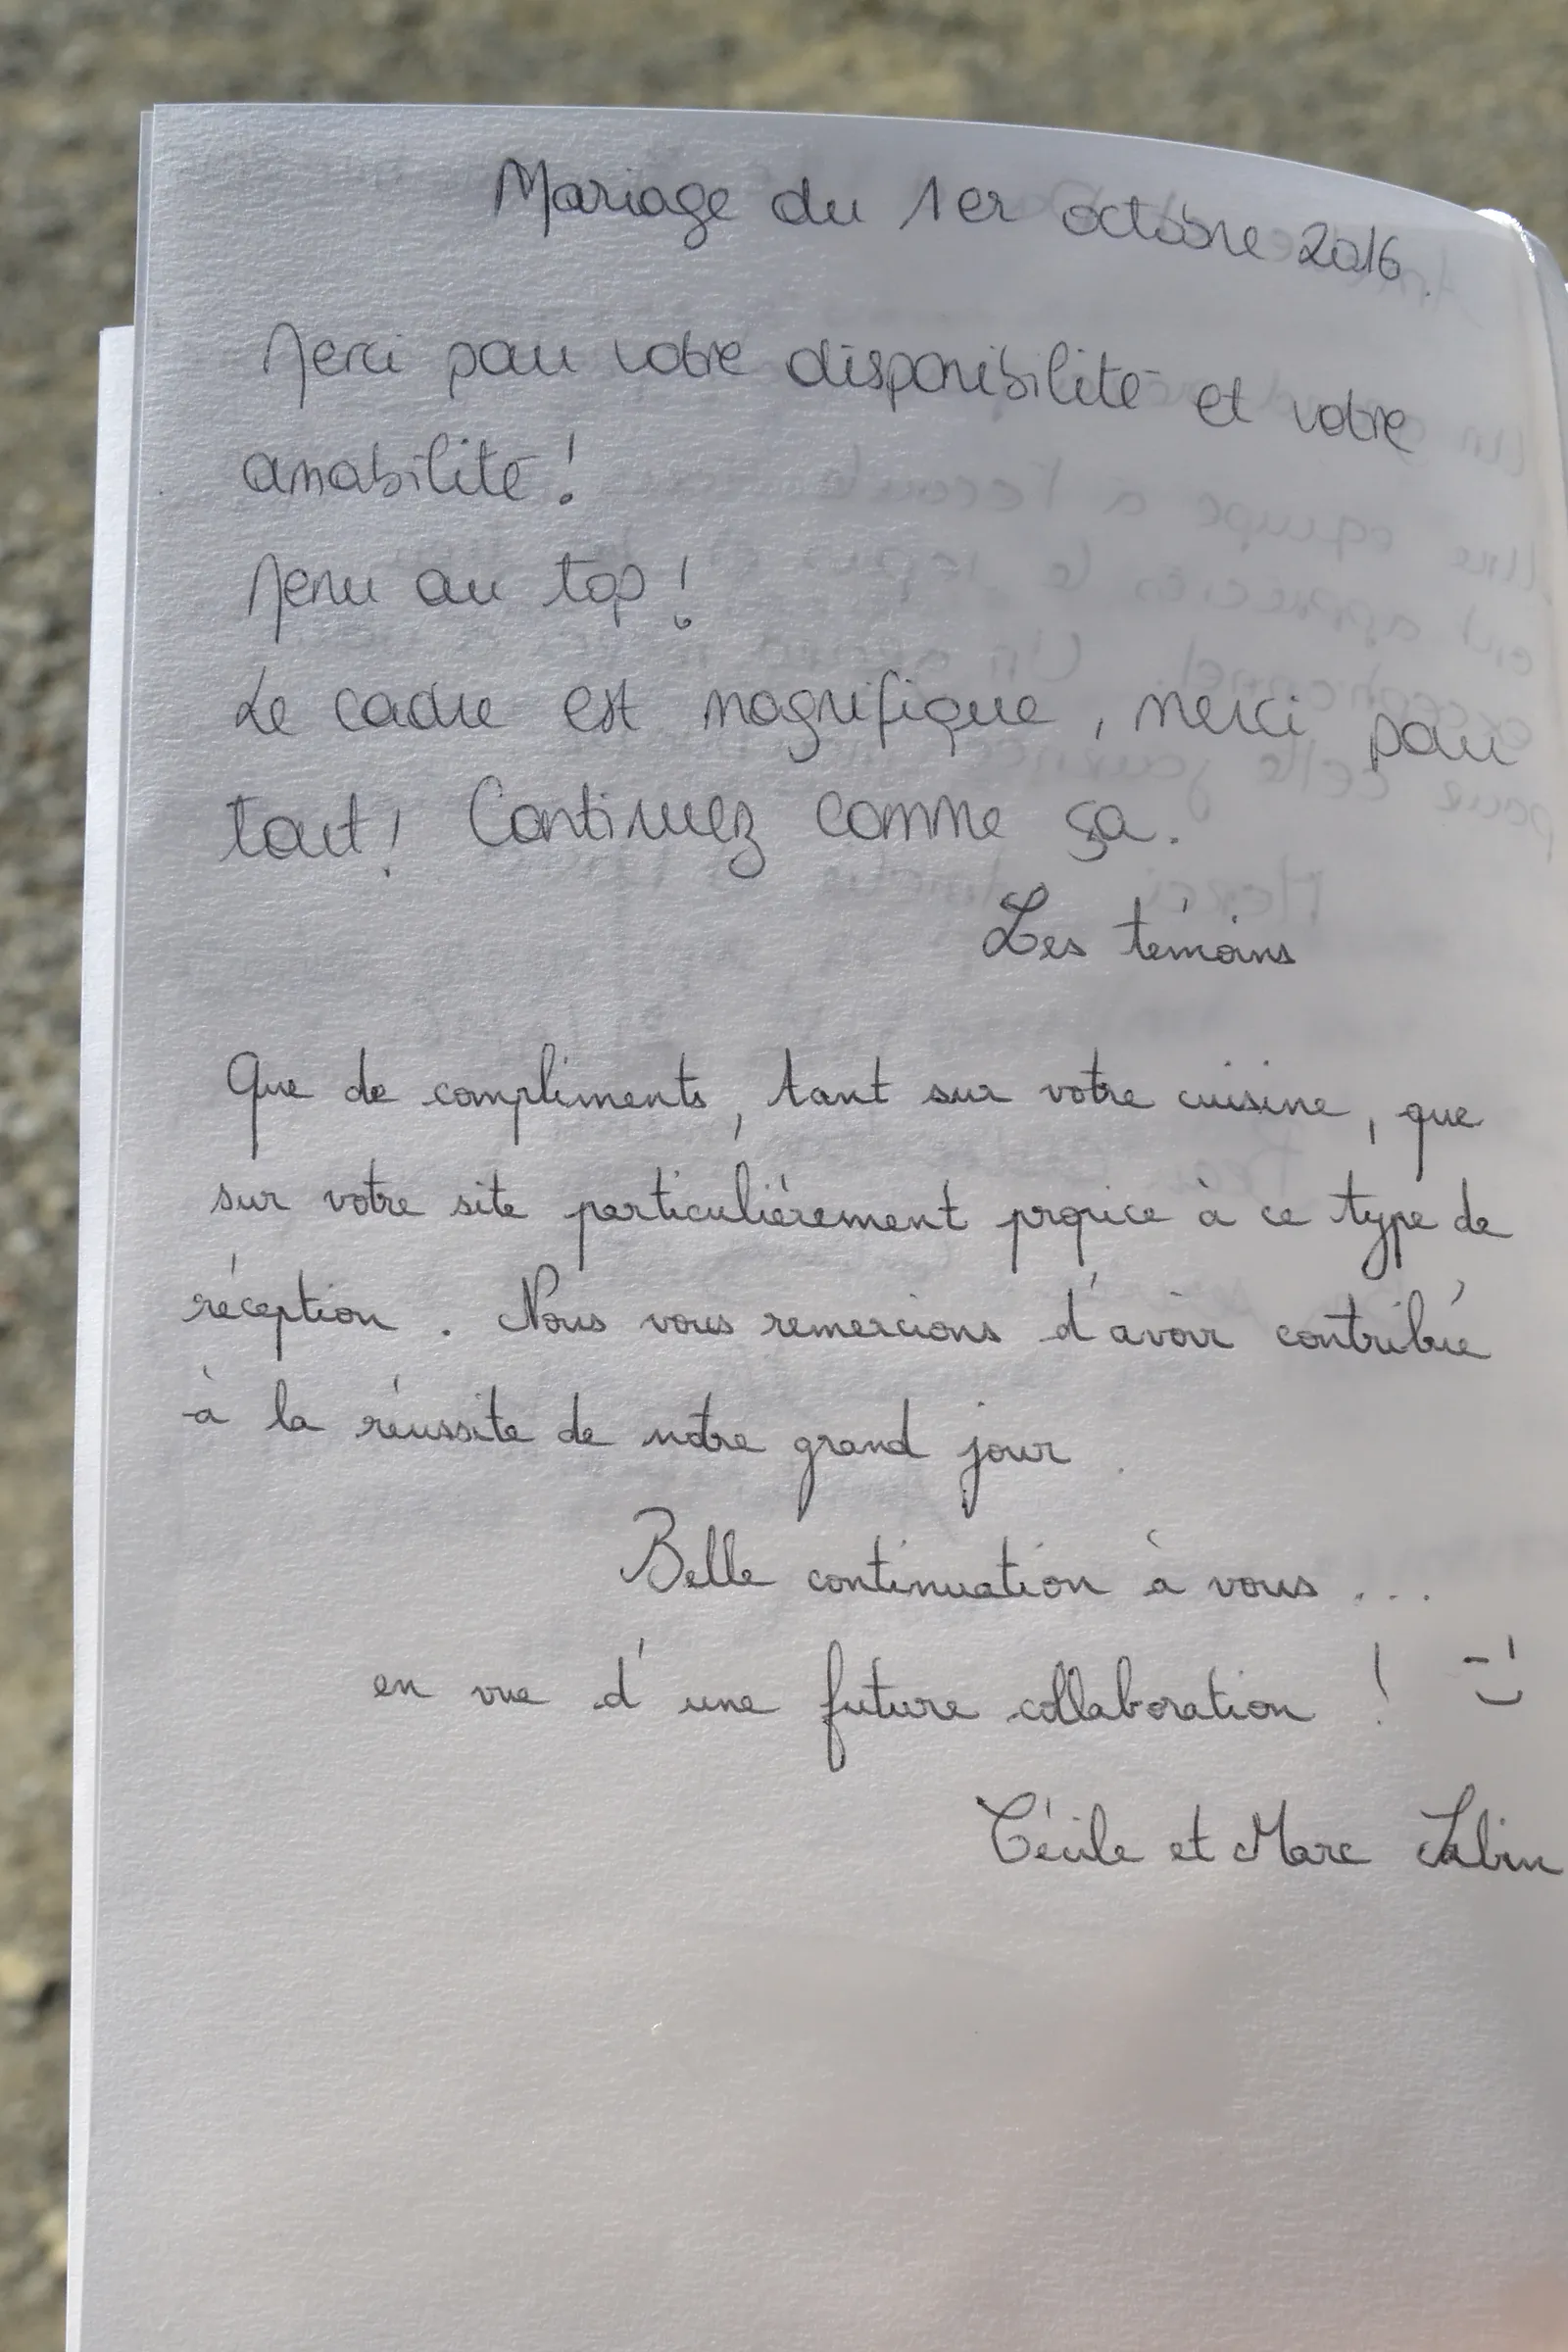 Mariage du 1er octobre 2016.
Merci pour votre disponibilité et votre
amabilité !
Menu au top !
Le cadre est magnifique, merci pour
tout ! Continuez comme ça.
Les témoins
Que de compliments, tant sur votre cuisine, que
sur votre site particulièrement propice à ce type de
réception. Nous vous remercions d'avoir contribué
à la réussite de notre grand jour.
Belle continuation à vous ...
en vue d'une future collaboration !
Cécile et Marc